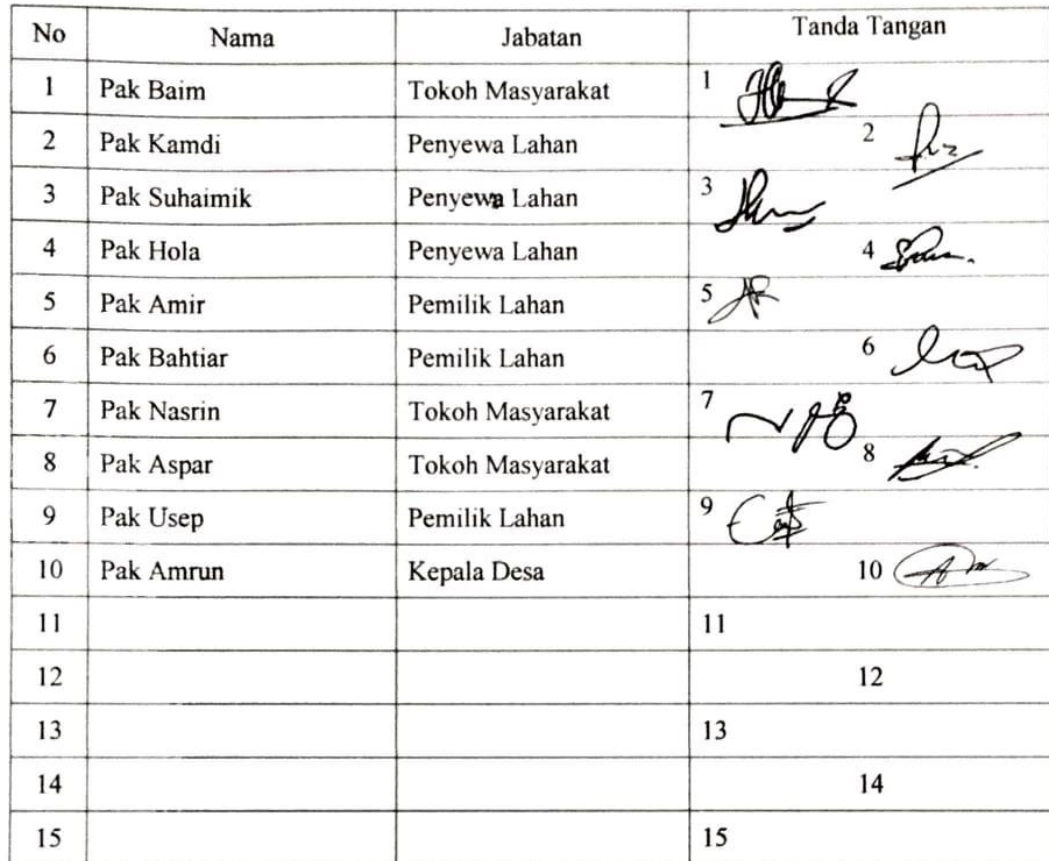 No Nama Jabatan Tanda Tangan
1 Pak Baim Tokoh Masyarakat 1
2 Pak Kamdi Penyewa Lahan 2
3 Pak Suhaimik Penyewa Lahan 3
4 Pak Hola Penyewa Lahan 4
5 Pak Amir Pemilik Lahan 5
6 Pak Bahtiar Pemilik Lahan 6
7 Pak Nasrin Tokoh Masyarakat 7
8 Pak Aspar Tokoh Masyarakat 8
9 Pak Usep Pemilik Lahan 9
10 Pak Amrun Kepala Desa 10
11 11
12 12
13 13
14 14
15 15